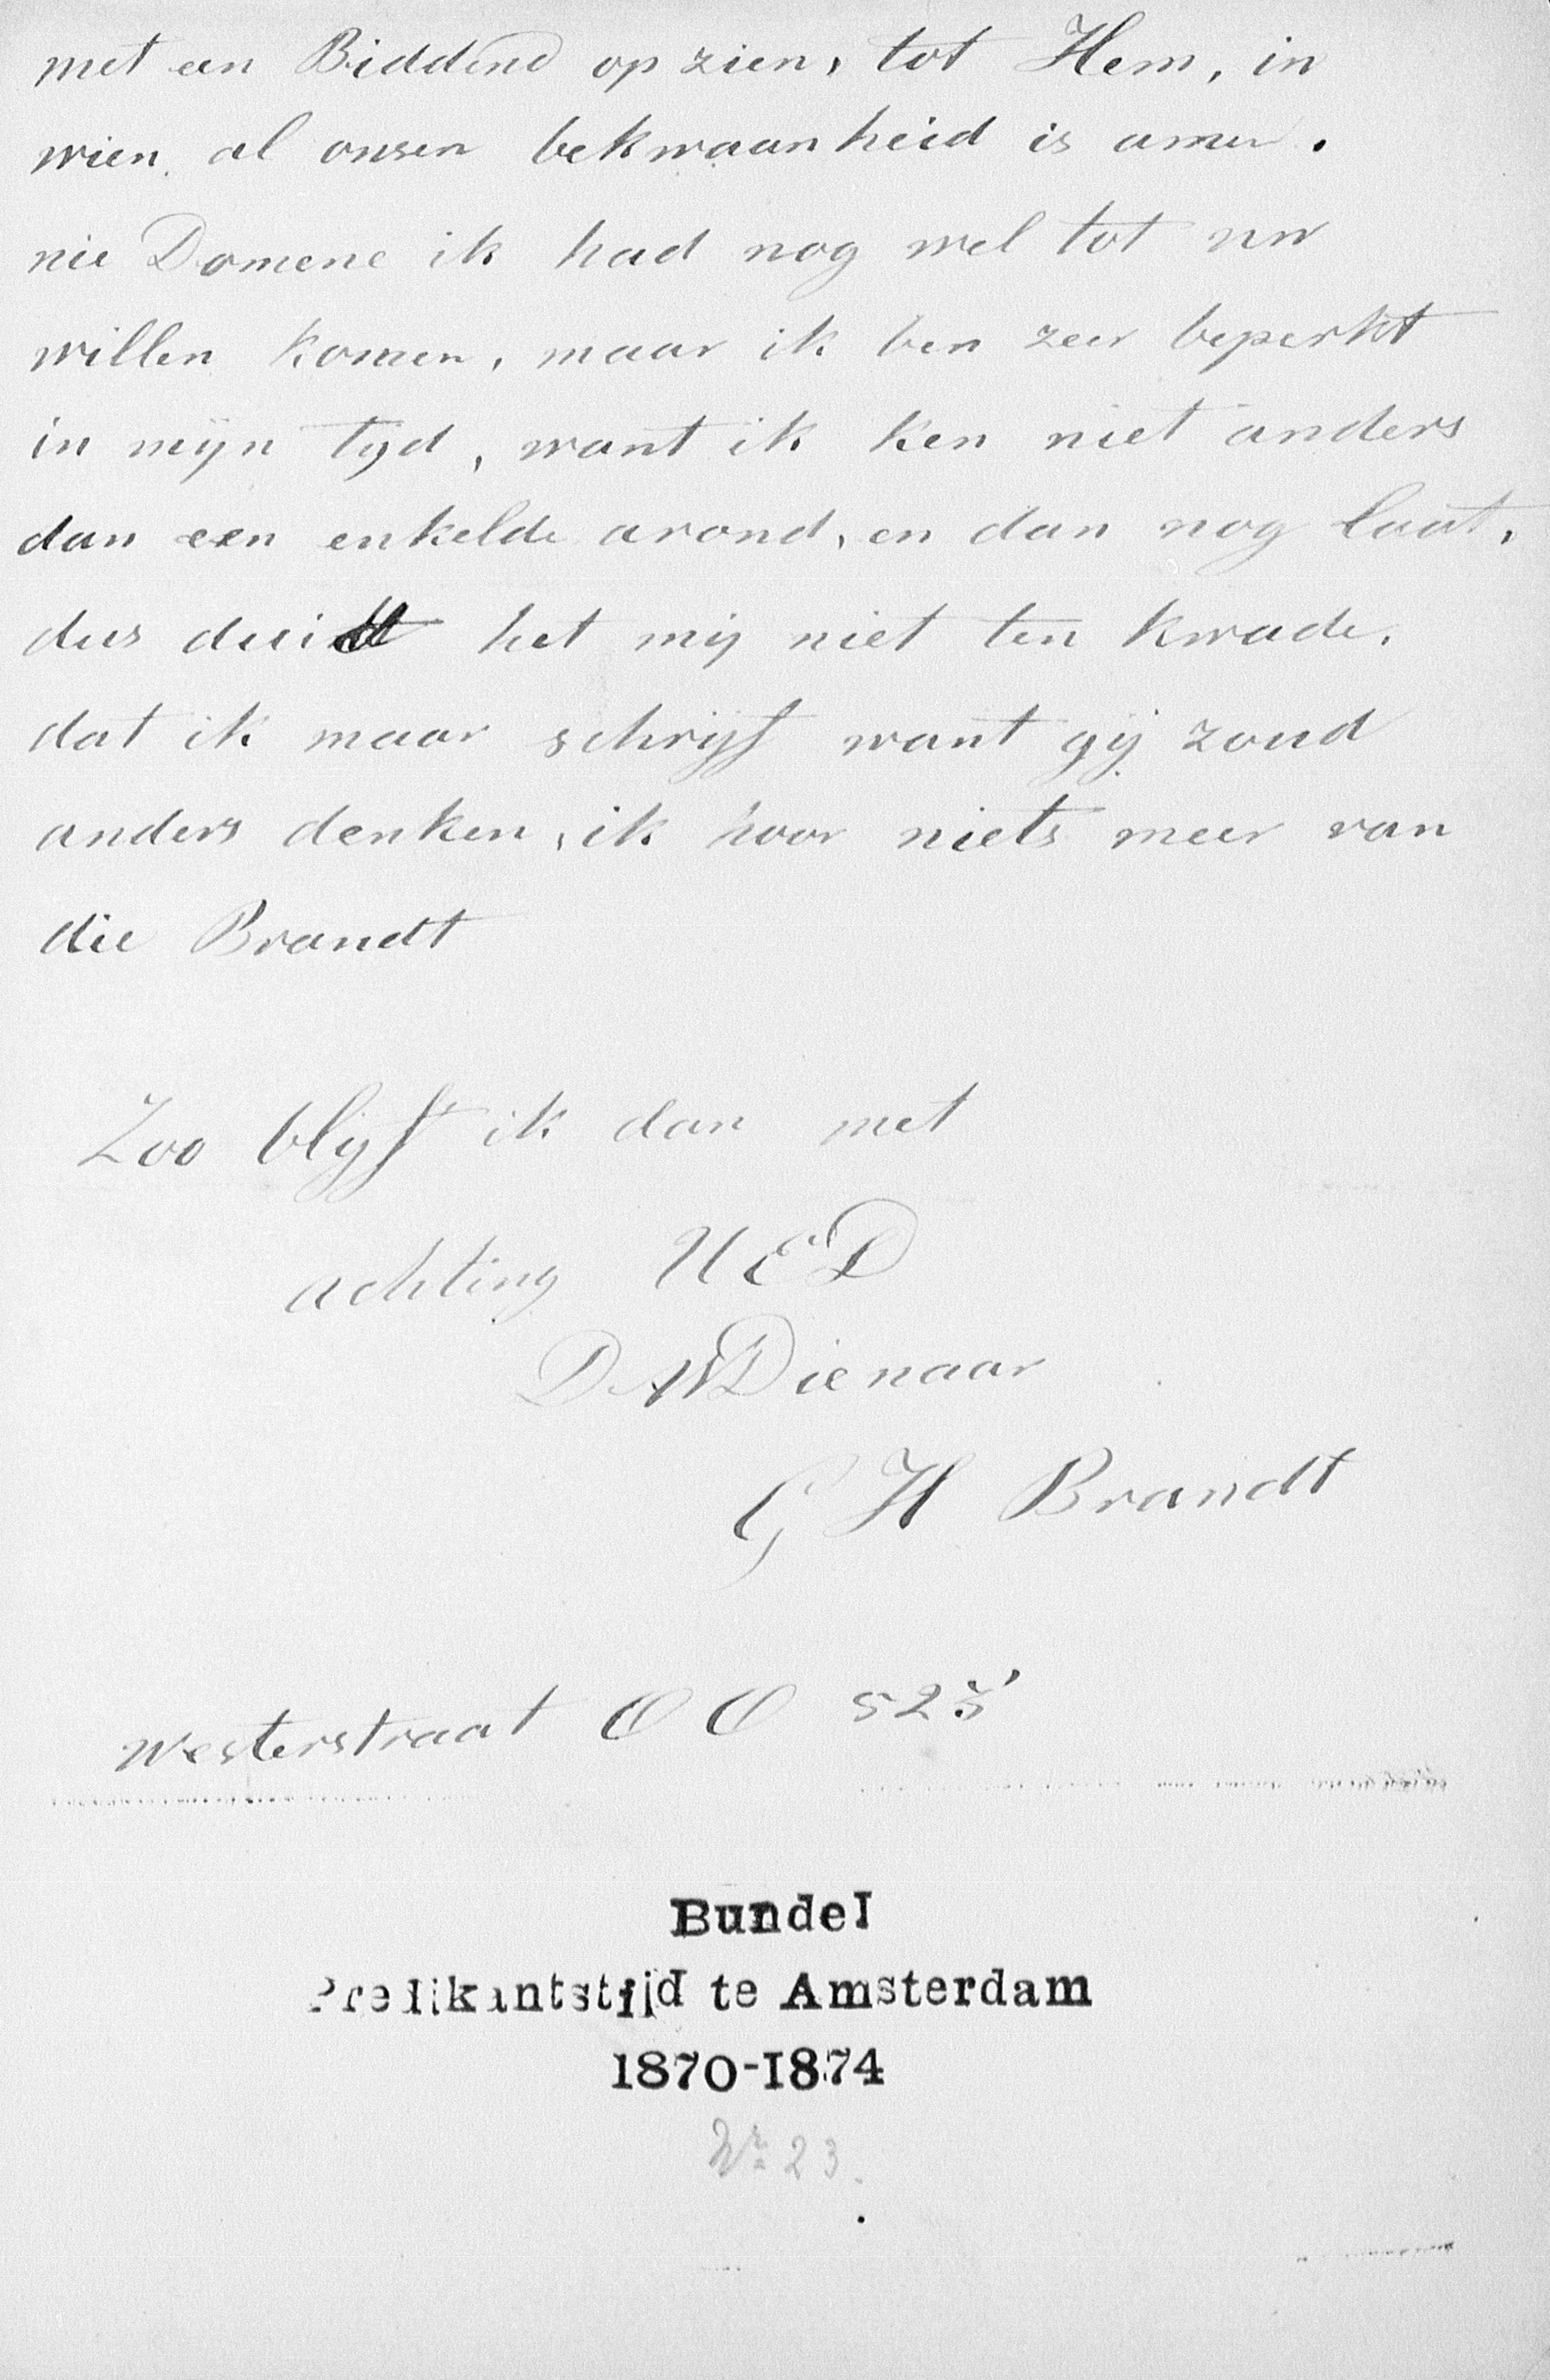 met een Biddend op zien, tot Hem, in
wien al onsen bekwaanheid is amen.
nu Domene ik had nog wel tot uw
willen komen, maar ik ben zeer beperkt
in mijn tijd, want ik ken niet anders
dan een enkelde avond, en dan nog laat,
dus duidt het mij niet ten kwade,
dat ik maar schrijf want gij zoud
anders denken, ik hoor niets meer van
die Brandt
Zoo blijf ik dan met
achting UED
DWDienaar
G H Brandt
Westerstraat O O 523
Bundel
Predikantstijd te Amsterdam
1870-1874
Nr. 23.